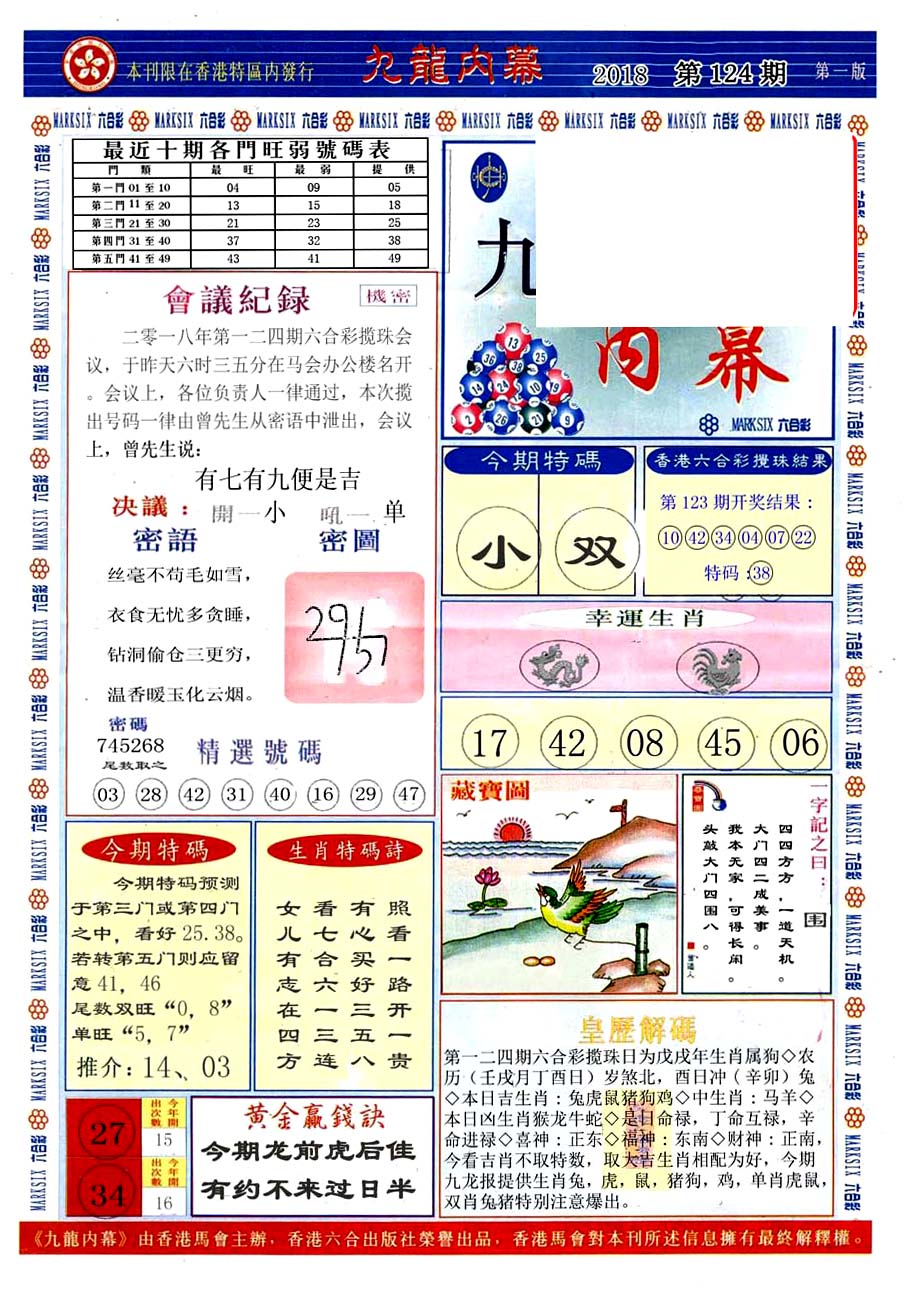 本刊限在香港特區内發行
九龍内幕
2018 第124期
第一版
MARKSIX 六合彩 MARKSIX 六合彩 MARKSIX 六合彩 MARKSIX 六合彩 MARKSIX 六合彩 MARKSIX 六合彩 MARKSIX 六合彩 MARKSIX 六合彩
最近十期各門旺弱號碼表
門類 最旺 最弱 提供
第一門 01 至 10 04 09 05
第二門 11 至 20 13 15 18
第三門 21 至 30 21 23 25
第四門 31 至 40 37 32 38
第五門 41 至 49 43 41 49
會議紀録
機密
二零一八年第一二四期六合彩揽珠会
议，于昨天六时三五分在马会办公楼名开
。会议上，各位负责人一律通过，本次揽
出号码一律由曾先生从密语中泄出，会议
上，曾先生说：
有七有九便是吉
决議： 開一小 吼一单
密語
密圖
丝毫不苟毛如雪，
衣食无忧多贪睡，
钻洞偷仓三更穷，
温香暖玉化云烟。
密碼
745268
尾数取之
精選號碼
03 28 42 31 40 16 29 47
九
内幕
13
36 25
14 24 10 19
2 26 21 9
MARKSIX 六合彩
今期特碼
小 双
香港六合彩攪珠結果
第123期开奖结果：
10 42 34 04 07 22
特码：38
幸運生肖
17 42 08 45 06
藏寶圖
一字記之曰：
围
四四方方，一道天机。
大门四二成美事。
我本无家，可得长闲。
头敲大门四围八。
今期特碼
今期特码预测
于第三门或第四门
之中，看好25.38。
若转第五门则应留
意41，46
尾数双旺“0，8”
单旺“5，7”
推介：14、03
生肖特碼詩
女看有照
儿七心看
有合买一
志六好路
在一三开
四三五一
方连八贵
27
出次數 今年開
15
34
出次數 今年開
16
黄金赢錢訣
今期龙前虎后佳
有约不来过日半
皇歷解碼
第一二四期六合彩揽珠日为戊戌年生肖属狗◇农
历（壬戌月丁酉日）岁煞北，酉日冲（辛卯）兔
◇本日吉生肖：兔虎鼠猪狗鸡◇中生肖：马羊◇
本日凶生肖猴龙牛蛇◇是日命禄，丁命互禄，辛
命进禄◇喜神：正东◇福神：东南◇财神：正南，
今看吉肖不取特数，取大吉生肖相配为好，今期
九龙报提供生肖兔，虎，鼠，猪狗，鸡，单肖虎鼠，
双肖兔猪特别注意爆出。
《九龍内幕》由香港馬會主辦，香港六合出版社榮譽出品，香港馬會對本刊所述信息擁有最終解釋權。